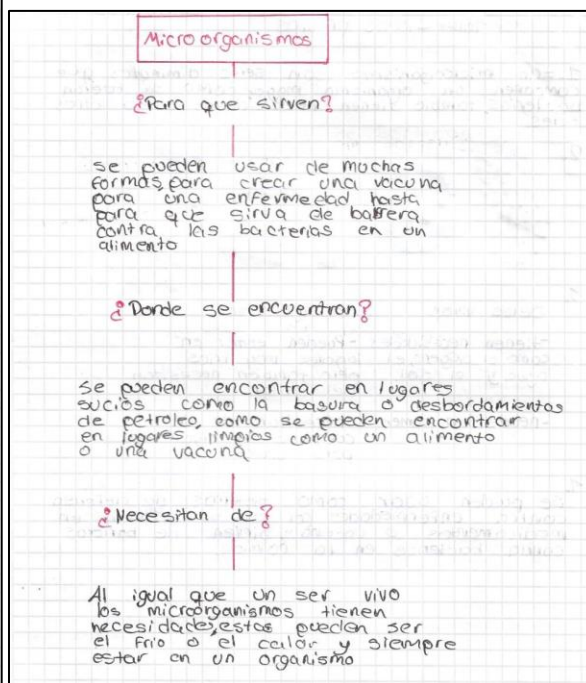 Microorganismos
¿Para que sirven?
se pueden usar de muchas
formas, para crear una vacuna
para una enfermedad hasta
para que sirva de barrera
contra las bacterias en un
alimento
¿Donde se encuentran?
Se pueden encontrar en lugares
sucios como la basura o desbordamientos
de petroleo, como se pueden encontrar
en lugares limpios como un alimento
o una vacuna
¿Necesitan de?
Al igual que un ser vivo
los microorganismos tienen
necesidades, estas pueden ser
el frio o el calor y siempre
estar en un organismo